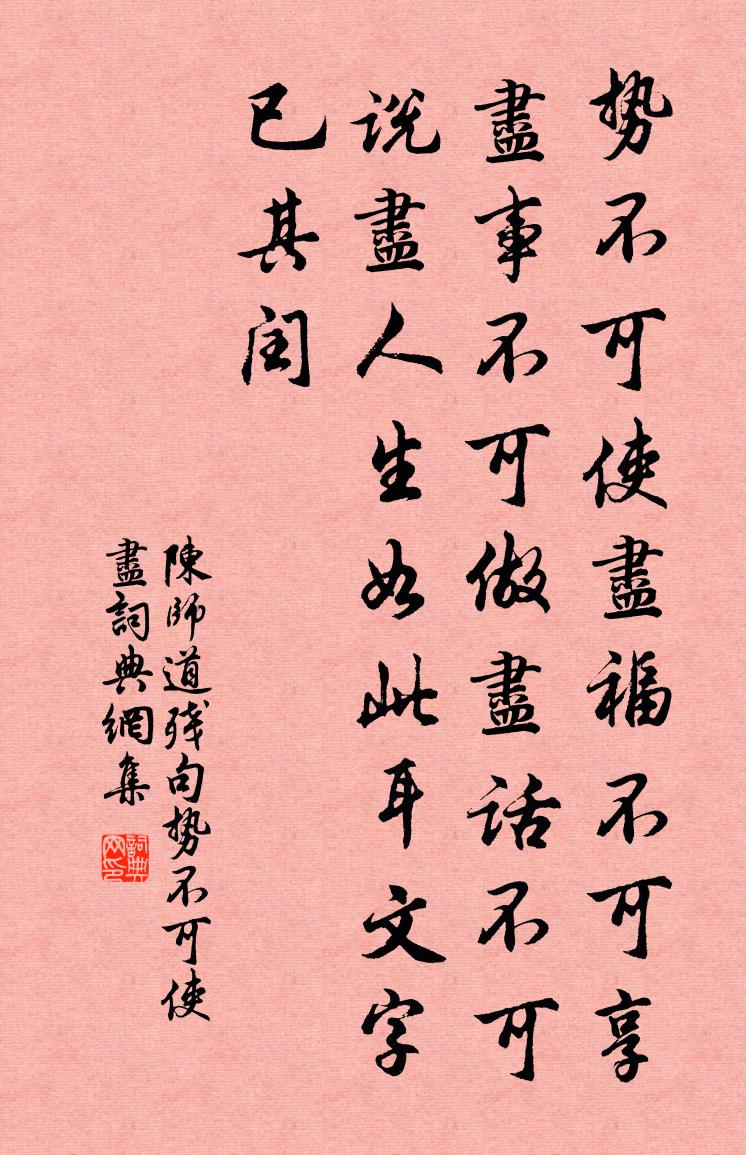 势不可使盡福不可享
盡事不可做盡話不可
説盡人生如此耳文字
已其闰
陳師道残句势不可使
盡詞典網集
詞典网印